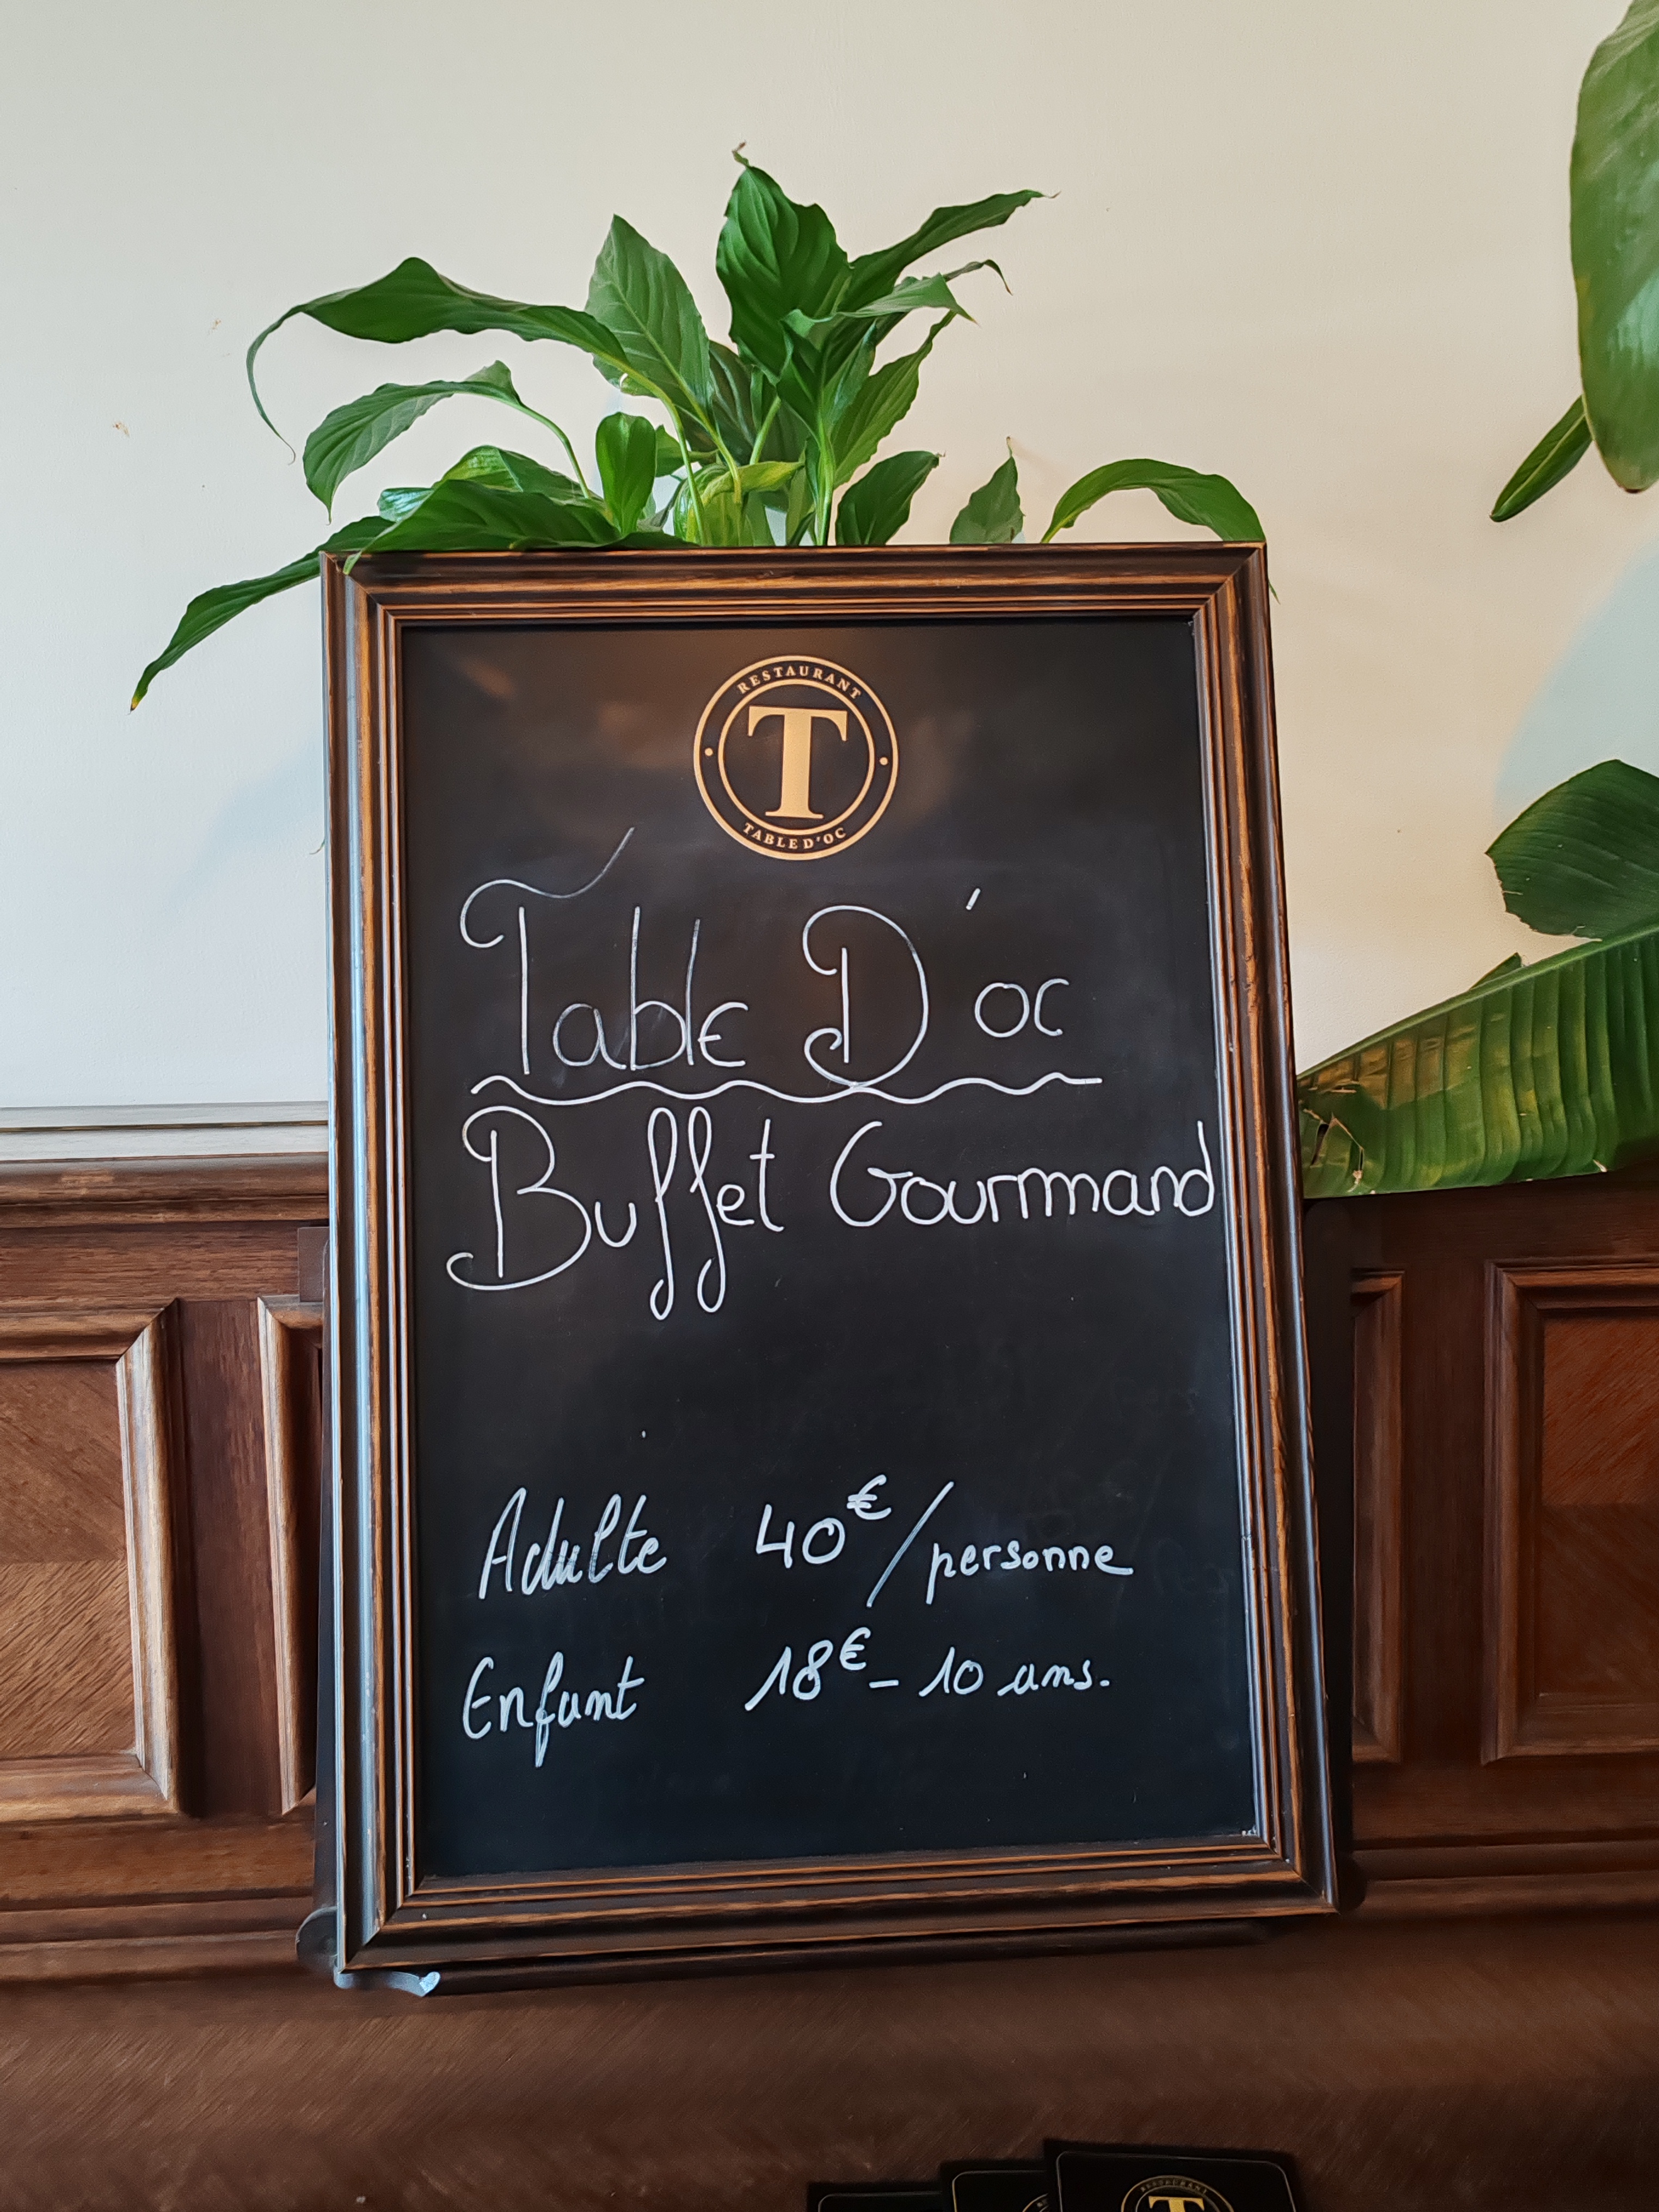 RESTAURANT
T
TABLE D'OC
Table D'oc
Buffet Gourmand
Adulte 40€/personne
Enfant 18€ - 10 ans.
RESTAURANT
T